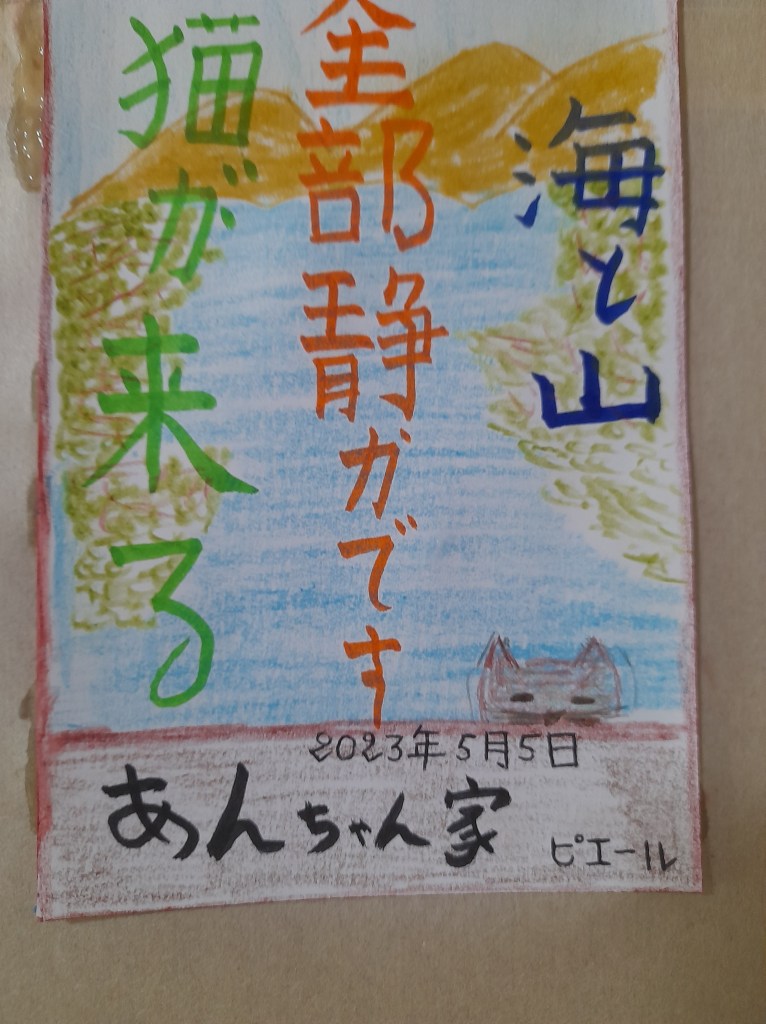 海と山
全部静カです
猫が来る
2023年5月5日
あんちゃん家
ピエール